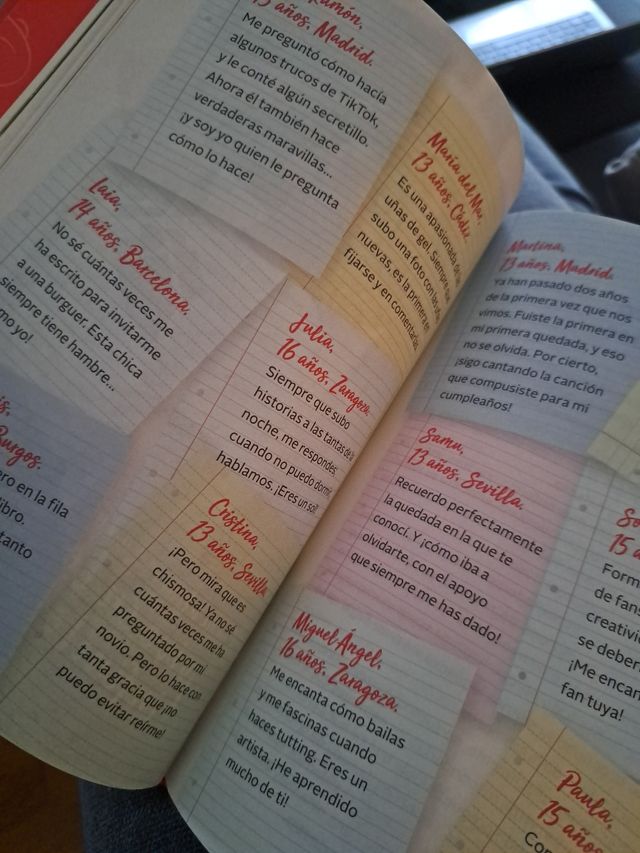 Ramón,
13 años, Madrid.
Me preguntó cómo hacía
algunos trucos de TikTok,
y le conté algún secretillo.
Ahora él también hace
verdaderas maravillas...
¡y soy yo quien le pregunta
cómo lo hace!
María del Mar,
13 años, Cádiz.
Es una apasionada de las
uñas de gel. Siempre que
subo una foto con las
nuevas, es la primera en
fijarse y en comentarlas
Laia,
14 años, Barcelona.
No sé cuántas veces me
ha escrito para invitarme
a una burguer. Esta chica
siempre tiene hambre...
mo yo!
Julia,
16 años, Zaragoza.
Siempre que subo
historias a las tantas de la
noche, me respondes
cuando no puedo dormir
hablamos. ¡Eres un sol!
Burgos.
ero en la fila
libro.
tanto
Cristina,
13 años, Sevilla
¡Pero mira que es
chismosa! Ya no sé
cuántas veces me ha
preguntado por mi
novio. Pero lo hace con
tanta gracia que ¡no
puedo evitar reírme!
Martina,
13 años, Madrid.
Ya han pasado dos años
de la primera vez que nos
vimos. Fuiste la primera en
mi primera quedada, y eso
no se olvida. Por cierto,
¡sigo cantando la canción
que compusiste para mi
cumpleaños!
Samu,
13 años, Sevilla.
Recuerdo perfectamente
la quedada en la que te
conocí. Y ¡cómo iba a
olvidarte, con el apoyo
que siempre me has dado!
Miguel Ángel,
16 años, Zaragoza.
Me encanta cómo bailas
y me fascinas cuando
haces tutting. Eres un
artista. ¡He aprendido
mucho de ti!
15 a
Form
de fans
creativi
se deber
¡Me encan
fan tuya!
Paula,
15 años